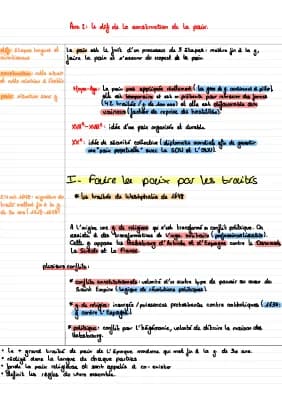 Axe 2 : le défi de la construction de la paix.
défi: étapes longues et
construction: volonté
paix: situation sans g
La paix est le fruit d'un processus de 3 étapes: mettre fin à la g,
faire la paix et s'assurer du respect de la paix
Moyen-Age: La paix pas appliquée réellement (les gens de g continuent à piller)
elle est temporaire et est un prétexte pour
et elle est
XVIe-XVIIIe: idée d'une paix organisée et durable
XXe: idée de sécurité collective (diplomatie mondiale afin de garantir
une "paix perpétuelle" avec la SDN et l'ONU).
I - Faire la paix par les traités
• les traités de Westphalie de 1648
24 oct 1648: signature du
traité mettant fin à la g
de 30 ans (1618-1648)
A l'origine une g de religion qui s'est transformée en conflit politique. On
assiste à des transformations de l'usage militaire (professionnalisation).
Cette g oppose les Habsbourg d'Autriche et d'Espagne contre le Danemark,
La Suède et la France.
plusieurs conflits:
• conflits constitutionnels: volonté d'un autre type de pouvoir au sein du
Saint Empire (logique de révolutions politiques)
• g de religion: insurgés/puissances protestantes contre catholiques (1635:
g contre l'Espagne)
• politique: conflit par l'hégémonie, volonté de détruire la maison des
Habsbourg.
• le + grand traité de paix de l'époque moderne qui met fin à la g de 30 ans.
• rédigé dans la langue de chaque parties
• fonde la paix religieuse et sont appelés à co-exister
• définit les règles de vivre ensemble.